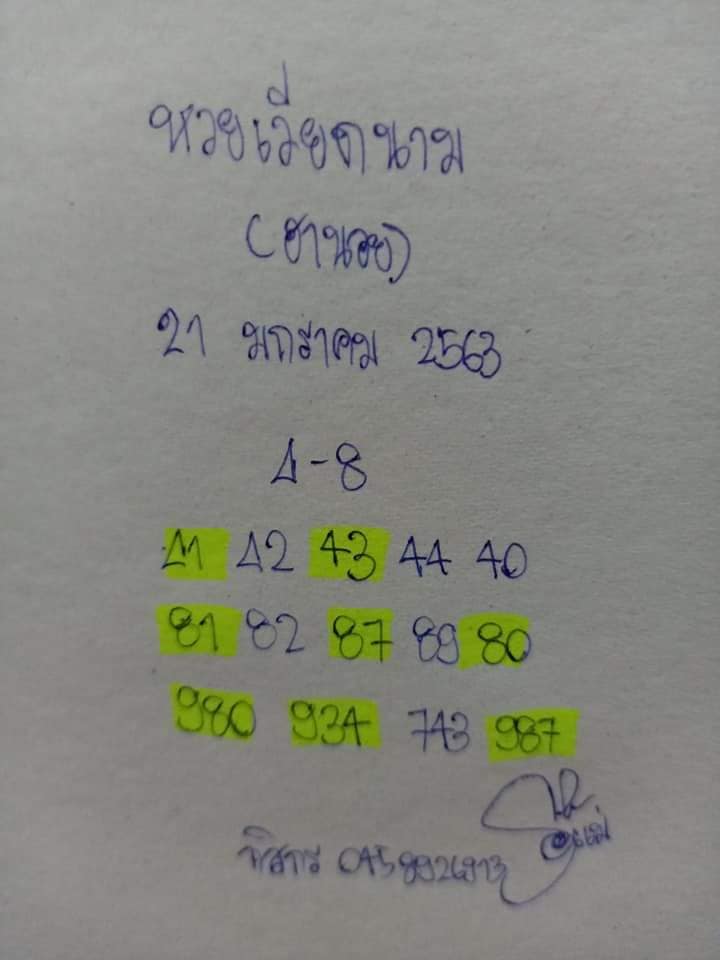 หวยเวียดนาม
(ฮานอย)
21 มกราคม 2563
4-8
41 42 43 44 40
81 82 87 89 80
980 934 743 987